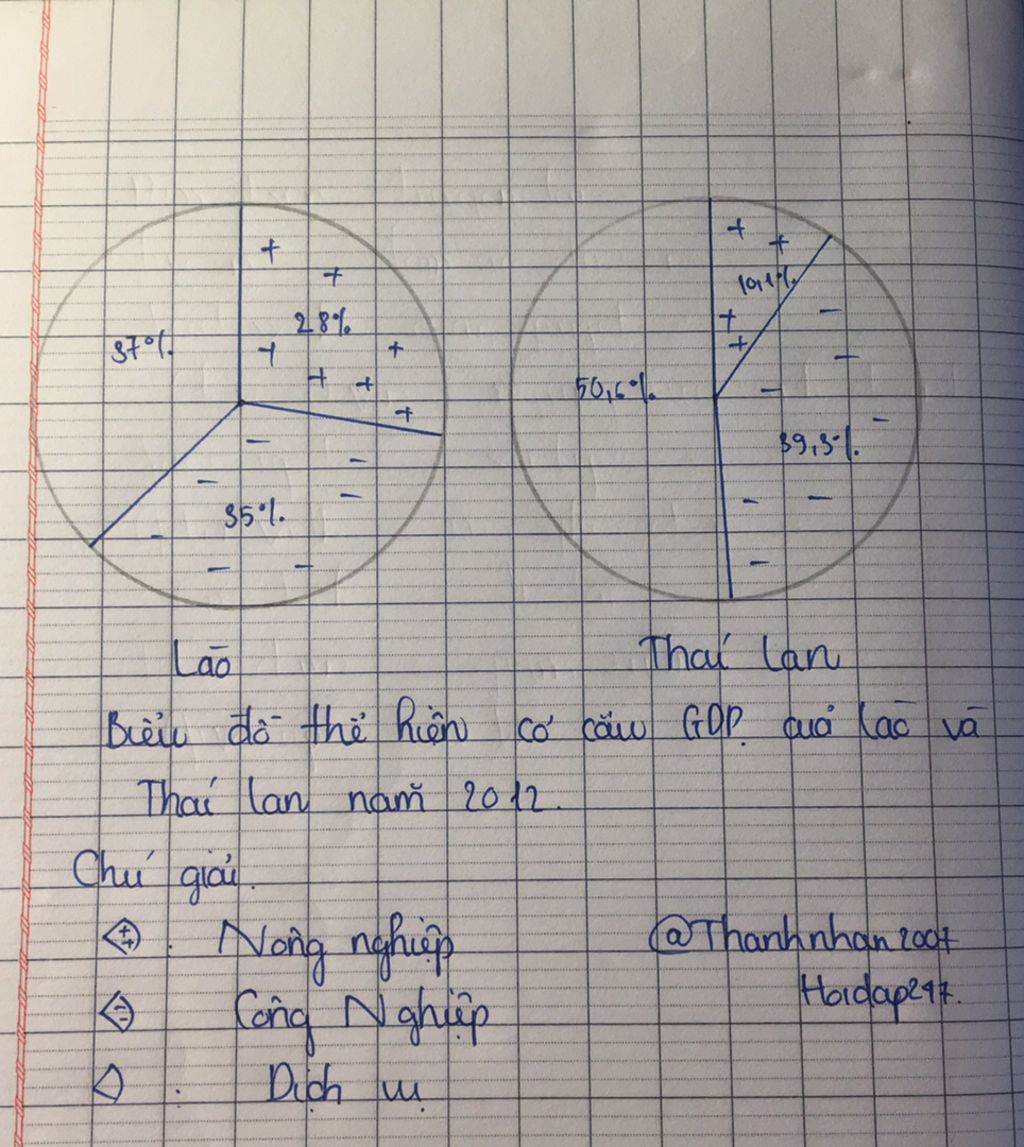 37%
28%
35%
10,1%
50,6%
39,3%
Lào
Thái Lan
Biểu đồ thể hiện cơ cấu GDP của Lào và
Thái Lan năm 2012.
Chú giải.
: Nông nghiệp
Công Nghiệp
: Dịch vụ
@Thanhnhan2007
Hoidap247.